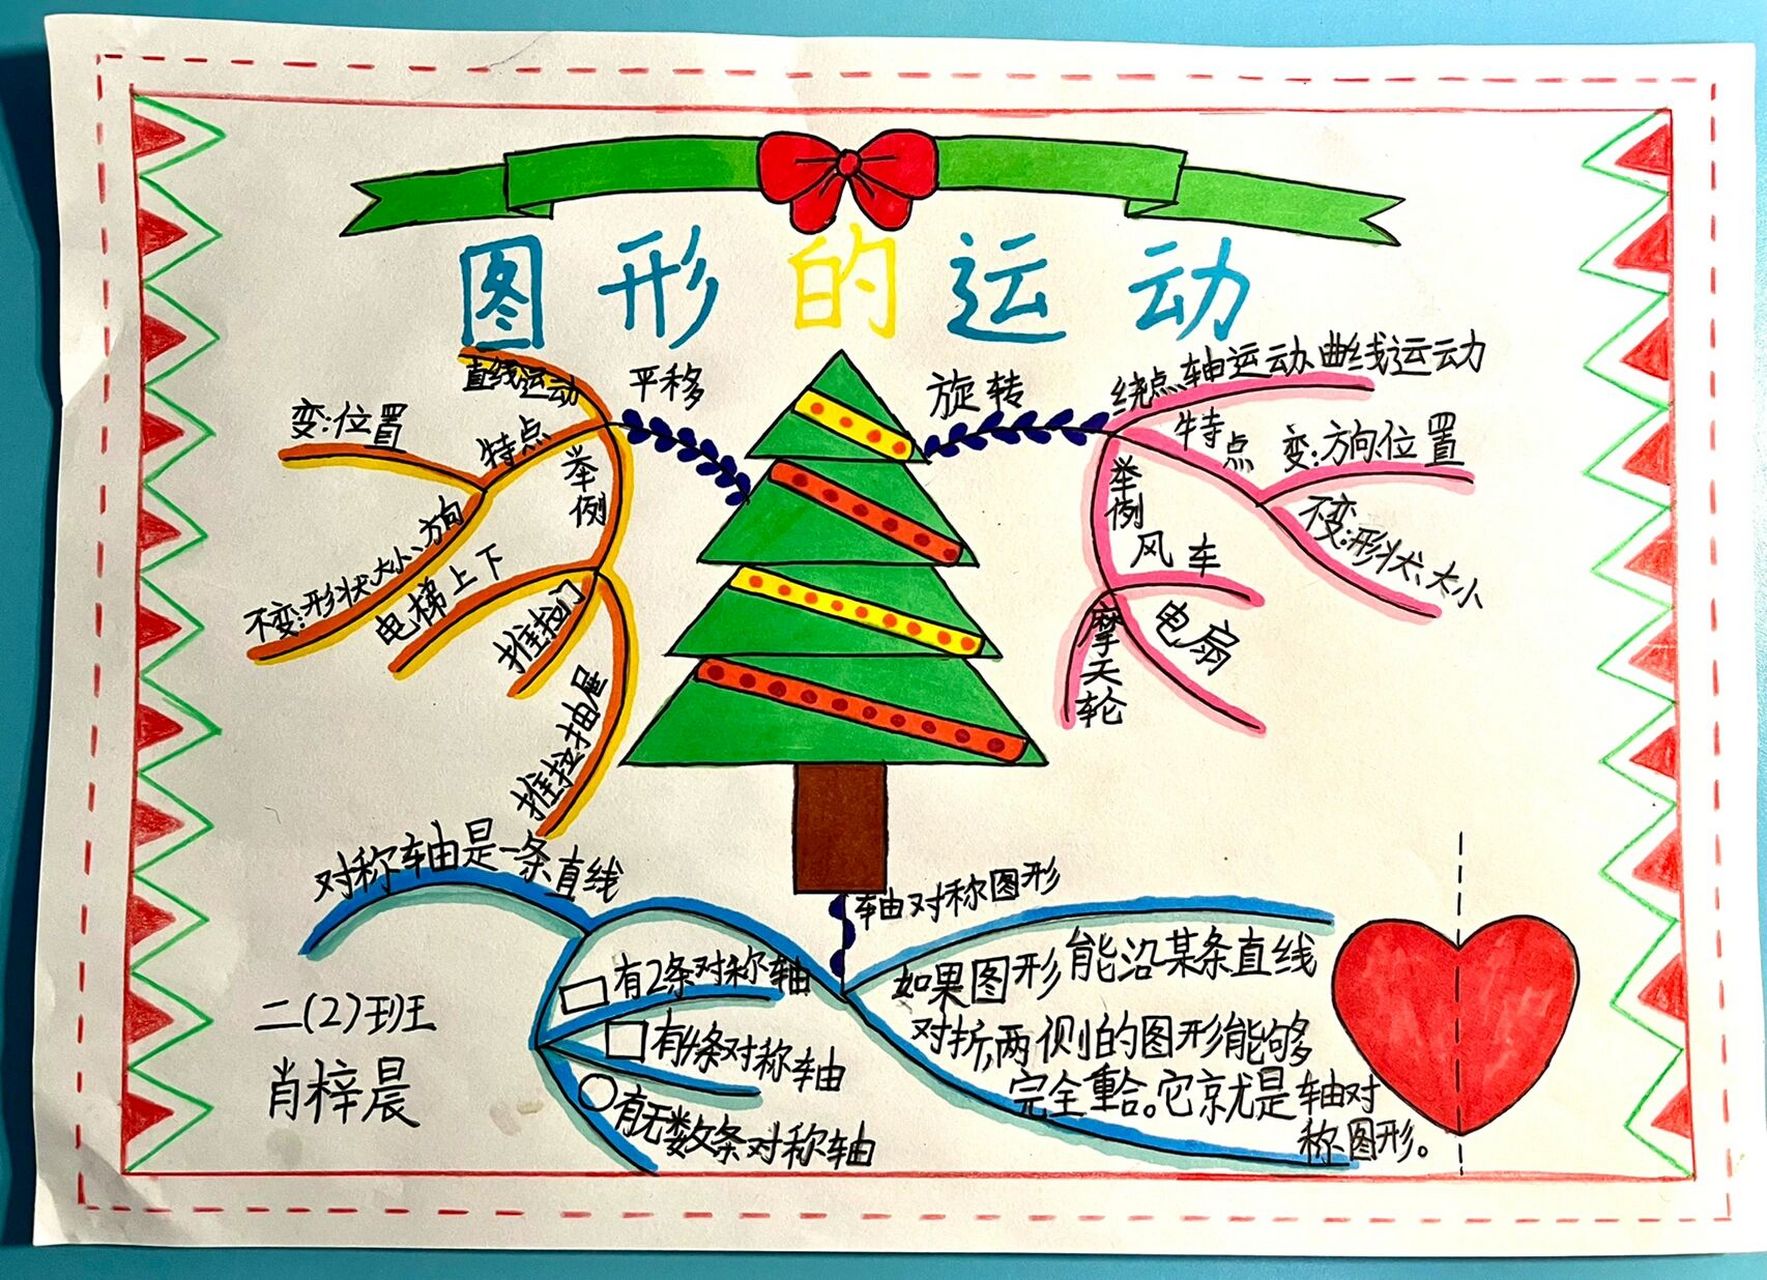 图形的运动
平移
直线运动
特点
变:位置
不变:形状、大小、方向
举例
电梯上下
推拉门
推拉抽屉
旋转
绕点、轴运动、曲线运动
特点
变:方向、位置
不变:形状、大小
举例
风车
电扇
摩天轮
轴对称图形
对称轴是一条直线
有2条对称轴
有4条对称轴
有无数条对称轴
如果图形能沿某条直线
对折,两侧的图形能够
完全重合。它就是轴对
称图形。
二(2)班
肖梓晨